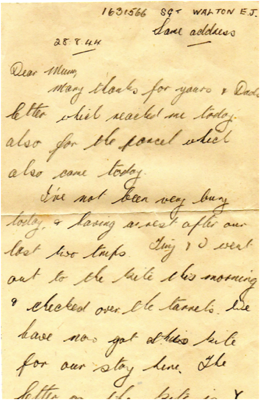 1631566 SGT WALTON E.J.
Same address
25 8 44
Dear Mum,
Many thanks for yours & Dad's
letter which reached me today.
also for the parcel which
also came today.
I've not been very busy
today, & having a rest after our
last two trips. & I went
out to the kite this morning
& checked over the turrets. We
have now got a kite
for our stay here. The
letter on the kite is Y